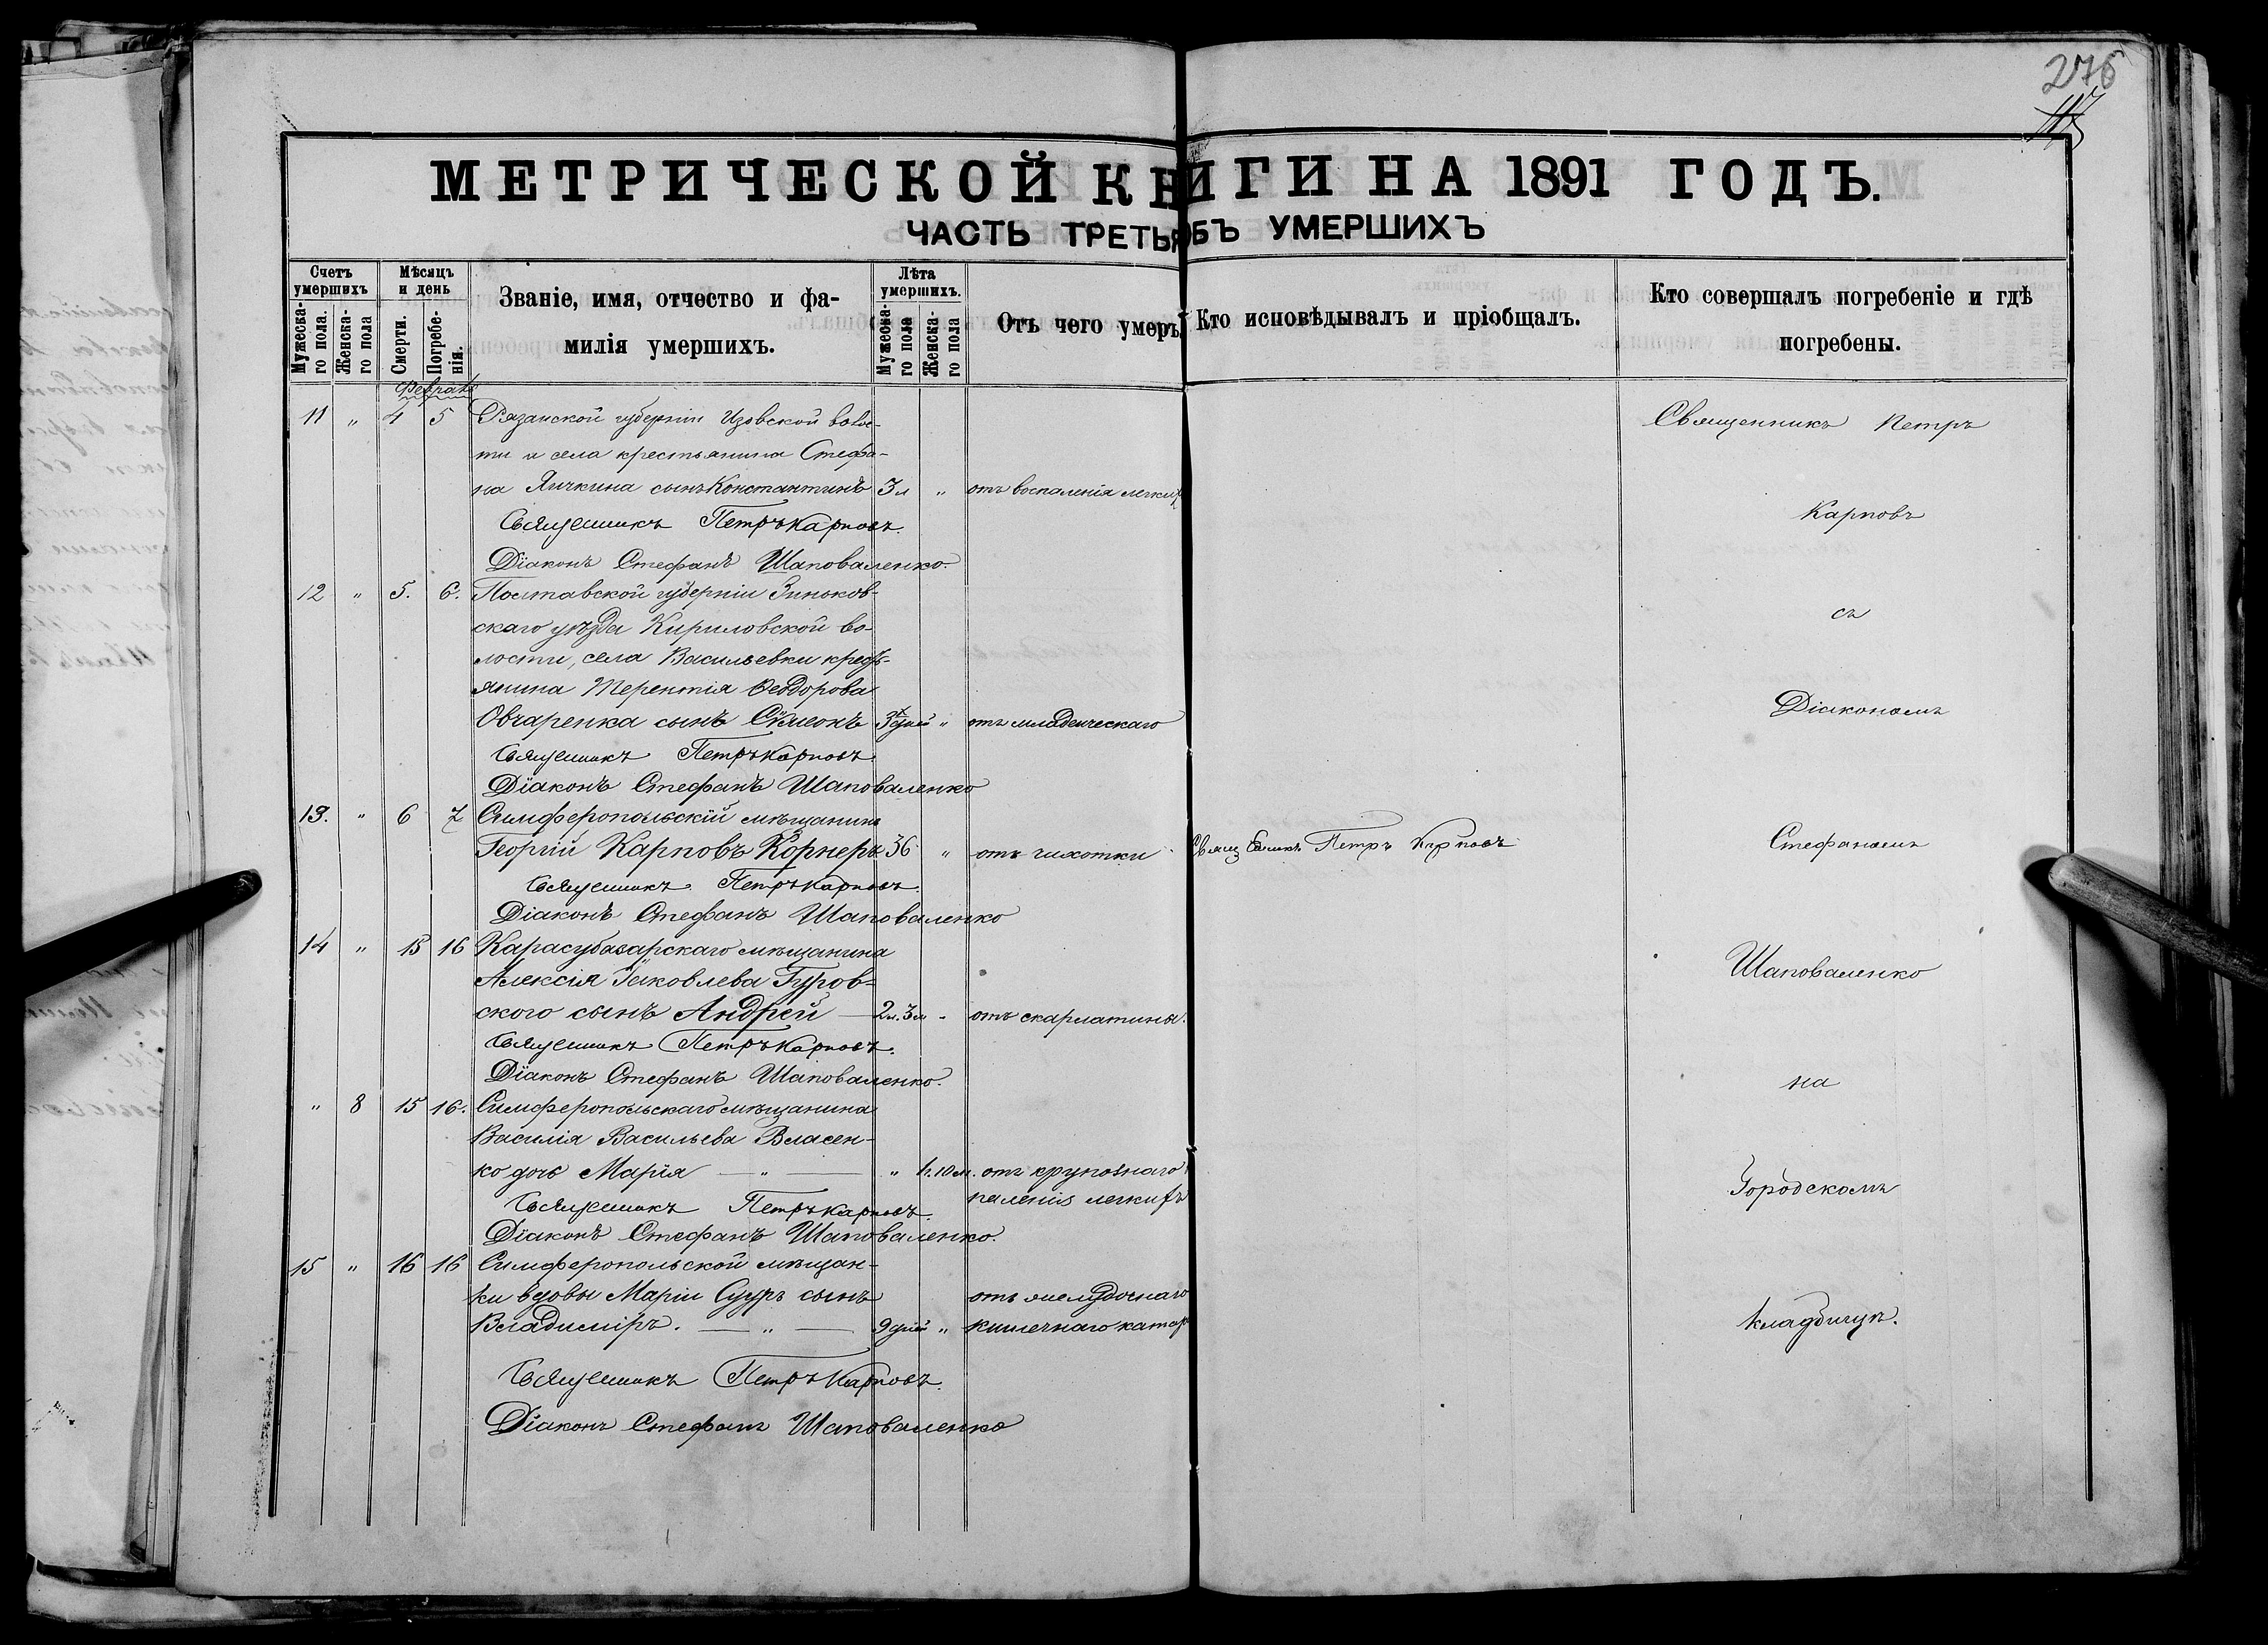 276
МЕТРИЧЕСКОЙ КНИГИ НА 1891 ГОДЪ.
ЧАСТЬ ТРЕТЬЯ ОБЪ УМЕРШИХЪ
Счетъ умершихъ
Мужеска-го пола.
Женска-го пола
Мѣсяцъ и день
Смерти.
Погребе-нія.
Званіе, имя, отчество и фа-
милія умершихъ.
Лѣта умершихъ.
Мужеска-го пола
Женска-го пола
Отъ чего умеръ
Кто исповѣдывалъ и пріобщалъ.
Кто совершалъ погребеніе и гдѣ
погребены.
11 " 4 5 Рязанской губерніи Изовской волос-
ти и села крестьянина Стефа-
на Яичкина сынъ Константинъ 3л " отъ воспаленія легких
Священникъ Петръ Карповъ.
Діаконъ Стефанъ Шаповаленко.
12 " 5. 6. Полтавской губерніи Зиньков-
скаго уѣзда Кириловской во-
лости, села Васильевки кресть-
янина Терентія Феодорова
Овчаренка сынъ Симеонъ 3 дней " отъ младенческаго
Священникъ Петръ Карповъ.
Діаконъ Стефанъ Шаповаленко
13. " 6 7 Симферопольскій мѣщанинъ
Георгій Карповъ Корнеръ 36 " отъ чихотки Священникъ Петръ Карповъ
Священникъ Петръ Карповъ.
Діаконъ Стефанъ Шаповаленко
14 " 15 16 Карасубазарскаго мѣщанина
Алексія Яковлева Гуров-
ского сынъ Андрей 2л. 3м - отъ скарлатины.
Священникъ Петръ Карповъ.
Діаконъ Стефанъ Шаповаленко.
" 8 15 16. Симферопольскаго мѣщанина
Василія Васильева Власен-
ко дочь Марія " " 10м. отъ крупознаго
паленія легкихъ
Священникъ Петръ Карповъ.
Діаконъ Стефанъ Шаповаленко.
15 " 16 16 Симферопольской мѣщан-
ки вдовы Маріи Сууръ сынъ отъ желудочнаго
Владиміръ. " 9 дней " кишечнаго катар
Священникъ Петръ Карповъ.
Діаконъ Стефанъ Шаповаленко
Священникъ Петръ
Карповъ
съ
Діакономъ
Стефаномъ
Шаповаленко
на
Городскомъ
кладбищѣ.